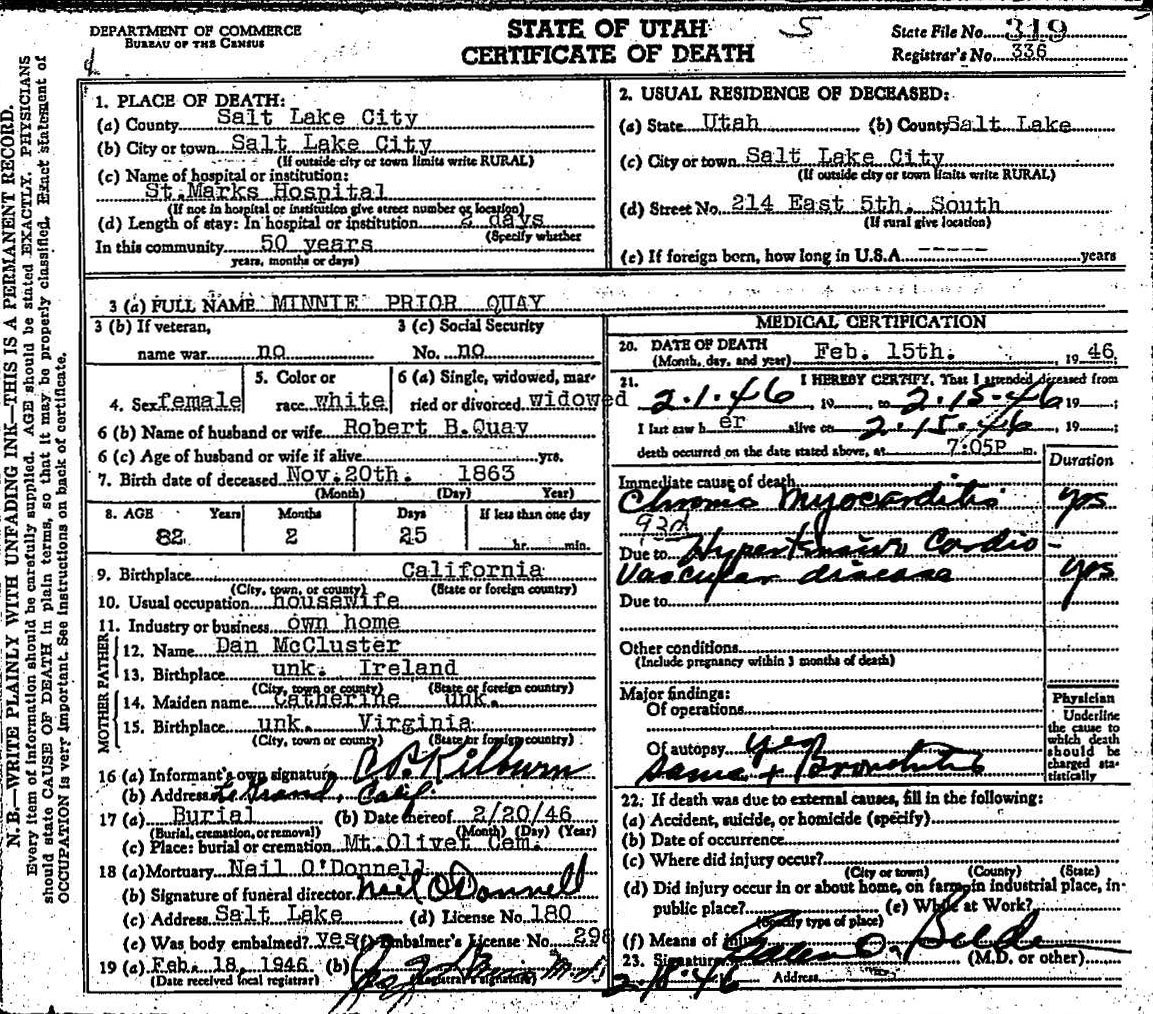 DEPARTMENT OF COMMERCE
BUREAU OF THE CENSUS
STATE OF UTAH
CERTIFICATE OF DEATH
5
State File No. 319
Registrar's No. 336
N. B.—WRITE PLAINLY WITH UNFADING INK—THIS IS A PERMANENT RECORD.
Every item of information should be carefully supplied. AGE should be stated EXACTLY. PHYSICIANS
should state CAUSE OF DEATH in plain terms, so that it may be properly classified. Exact statement of
OCCUPATION is very important. See instructions on back of certificate.
1. PLACE OF DEATH:
(a) County Salt Lake City
(b) City or town Salt Lake City
(If outside city or town limits write RURAL)
(c) Name of hospital or institution:
St.Marks Hospital
(If not in hospital or institution give street number or location)
(d) Length of stay: In hospital or institution 2 days
(Specify whether
In this community 50 years
years, months or days)
2. USUAL RESIDENCE OF DECEASED:
(a) State Utah (b) County Salt Lake
(c) City or town Salt Lake City
(If outside city or town limits write RURAL)
(d) Street No. 214 East 5th. South
(If rural give location)
(e) If foreign born, how long in U.S.A. ----- years
3 (a) FULL NAME MINNIE PRIOR QUAY
3 (b) If veteran, 3 (c) Social Security
name war no No. no
5. Color or 6 (a) Single, widowed, mar-
4. Sex female race white ried or divorced widowed
6 (b) Name of husband or wife Robert B.Quay
6 (c) Age of husband or wife if alive yrs.
7. Birth date of deceased Nov.20th. 1863
(Month) (Day) Year)
8. AGE Years Months Days If less than one day
82 2 25 hr. min.
9. Birthplace California
(City, town, or county) (State or foreign country)
10. Usual occupation housewife
11. Industry or business own home
FATHER
12. Name Dan McCluster
13. Birthplace unk. Ireland
(City, town or county) (State or foreign country)
MOTHER
14. Maiden name Catherine unk.
15. Birthplace unk. Virginia
(City, town or county) (State or foreign country)
16 (a) Informant's own signature Kilburn
(b) Address Le Grand, Calif
17 (a) Burial (b) Date thereof 2/20/46
(Burial, cremation, or removal) (Month) (Day) (Year)
(c) Place: burial or cremation Mt.Olivet Cem.
18 (a) Mortuary Neil O'Donnell
(b) Signature of funeral director Neil O'Donnell
(c) Address Salt Lake (d) License No. 180
(e) Was body embalmed? yes (f) Embalmer's License No. 298
19 (a) Feb. 18, 1946 (b)
(Date received local registrar) (Registrar's signature)
MEDICAL CERTIFICATION
20. DATE OF DEATH
(Month, day, and year) Feb. 15th. , 19 46
21. I HEREBY CERTIFY, That I attended deceased from
2.1.46 19 , to 2.15.46 19 ;
I last saw h er alive on 2.15.46 , 19 ;
death occurred on the date stated above, at 7:05P m.
Duration
Immediate cause of death
Chronic Myocarditis yrs
93d
Due to Hypertensive Cardio-
Vascular disease yrs
Due to
Other conditions
(Include pregnancy within 3 months of death)
Major findings:
Of operations
Of autopsy yes
Same + Bronchitis
Physician
Underline
the cause to
which death
should be
charged sta-
tistically
22. If death was due to external causes, fill in the following:
(a) Accident, suicide, or homicide (specify)
(b) Date of occurrence
(c) Where did injury occur?
(City or town) (County) (State)
(d) Did injury occur in or about home, on farm, in industrial place, in
public place? (e) While at Work?
(Specify type of place)
(f) Means of injury
23. Signature (M.D. or other)
2.18.46 Address